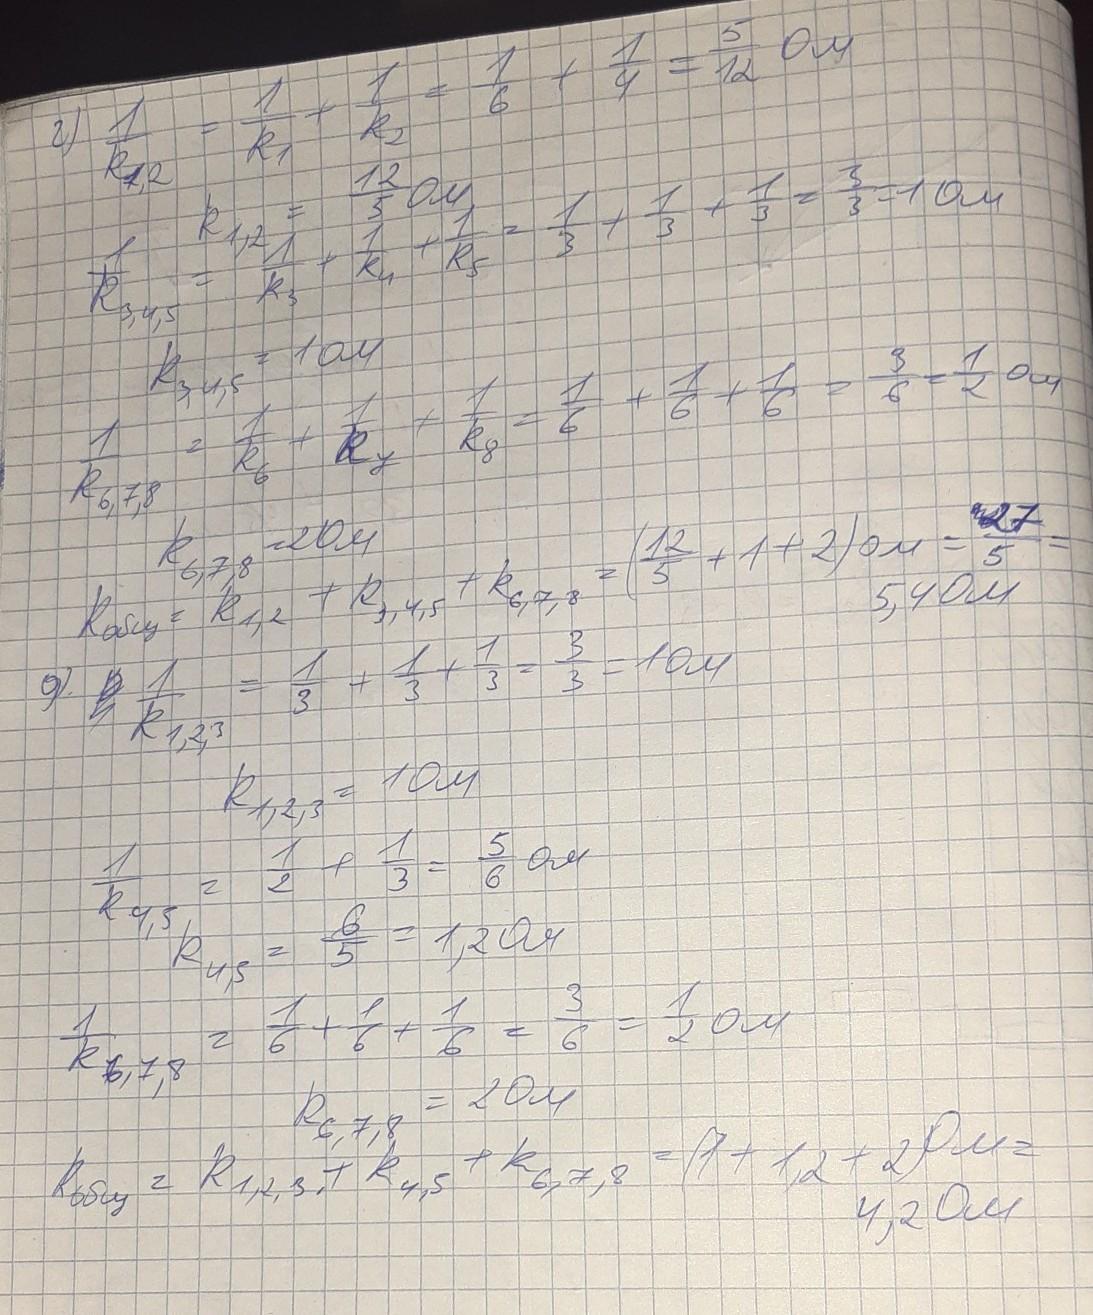 г) 1/R1,2 = 1/R1 + 1/R2 = 1/6 + 1/4 = 5/12 Ом
R1,2 = 12/5 Ом
1/R3,4,5 = 1/R3 + 1/R4 + 1/R5 = 1/3 + 1/3 + 1/3 = 3/3 = 1 Ом
R3,4,5 = 1 Ом
1/R6,7,8 = 1/R6 + 1/R7 + 1/R8 = 1/6 + 1/6 + 1/6 = 3/6 = 1/2 Ом
R6,7,8 = 2 Ом
Rобщ = R1,2 + R3,4,5 + R6,7,8 = (12/5 + 1 + 2) Ом = 27/5 =
5,4 Ом
д) 1/R1,2,3 = 1/3 + 1/3 + 1/3 = 3/3 = 1 Ом
R1,2,3 = 1 Ом
1/R4,5 = 1/2 + 1/3 = 5/6 Ом
R4,5 = 6/5 = 1,2 Ом
1/R6,7,8 = 1/6 + 1/6 + 1/6 = 3/6 = 1/2 Ом
R6,7,8 = 2 Ом
Rобщ = R1,2,3 + R4,5 + R6,7,8 = (1 + 1,2 + 2) Ом =
4,2 Ом